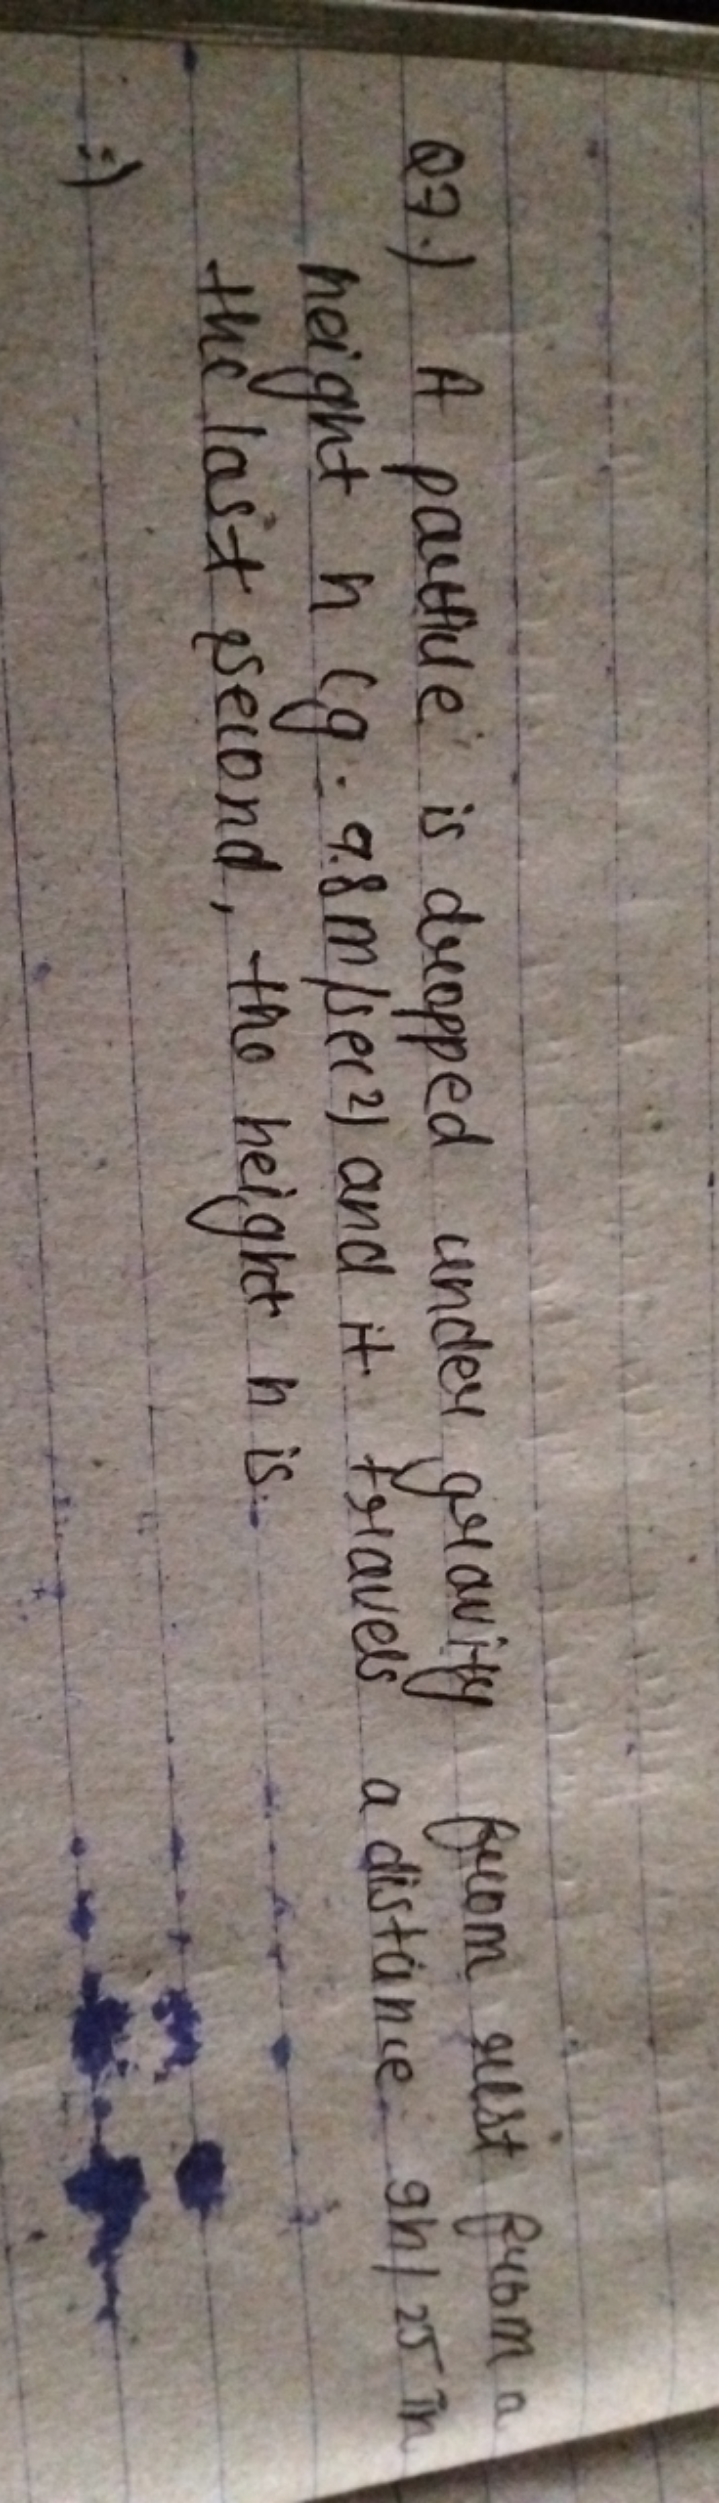 Q7.) A particle is dropped under gravity from rest from a
height h (g = 9.8 m/sec²) and it travels a distance 9h/25 in
the last second, the height h is.
:)